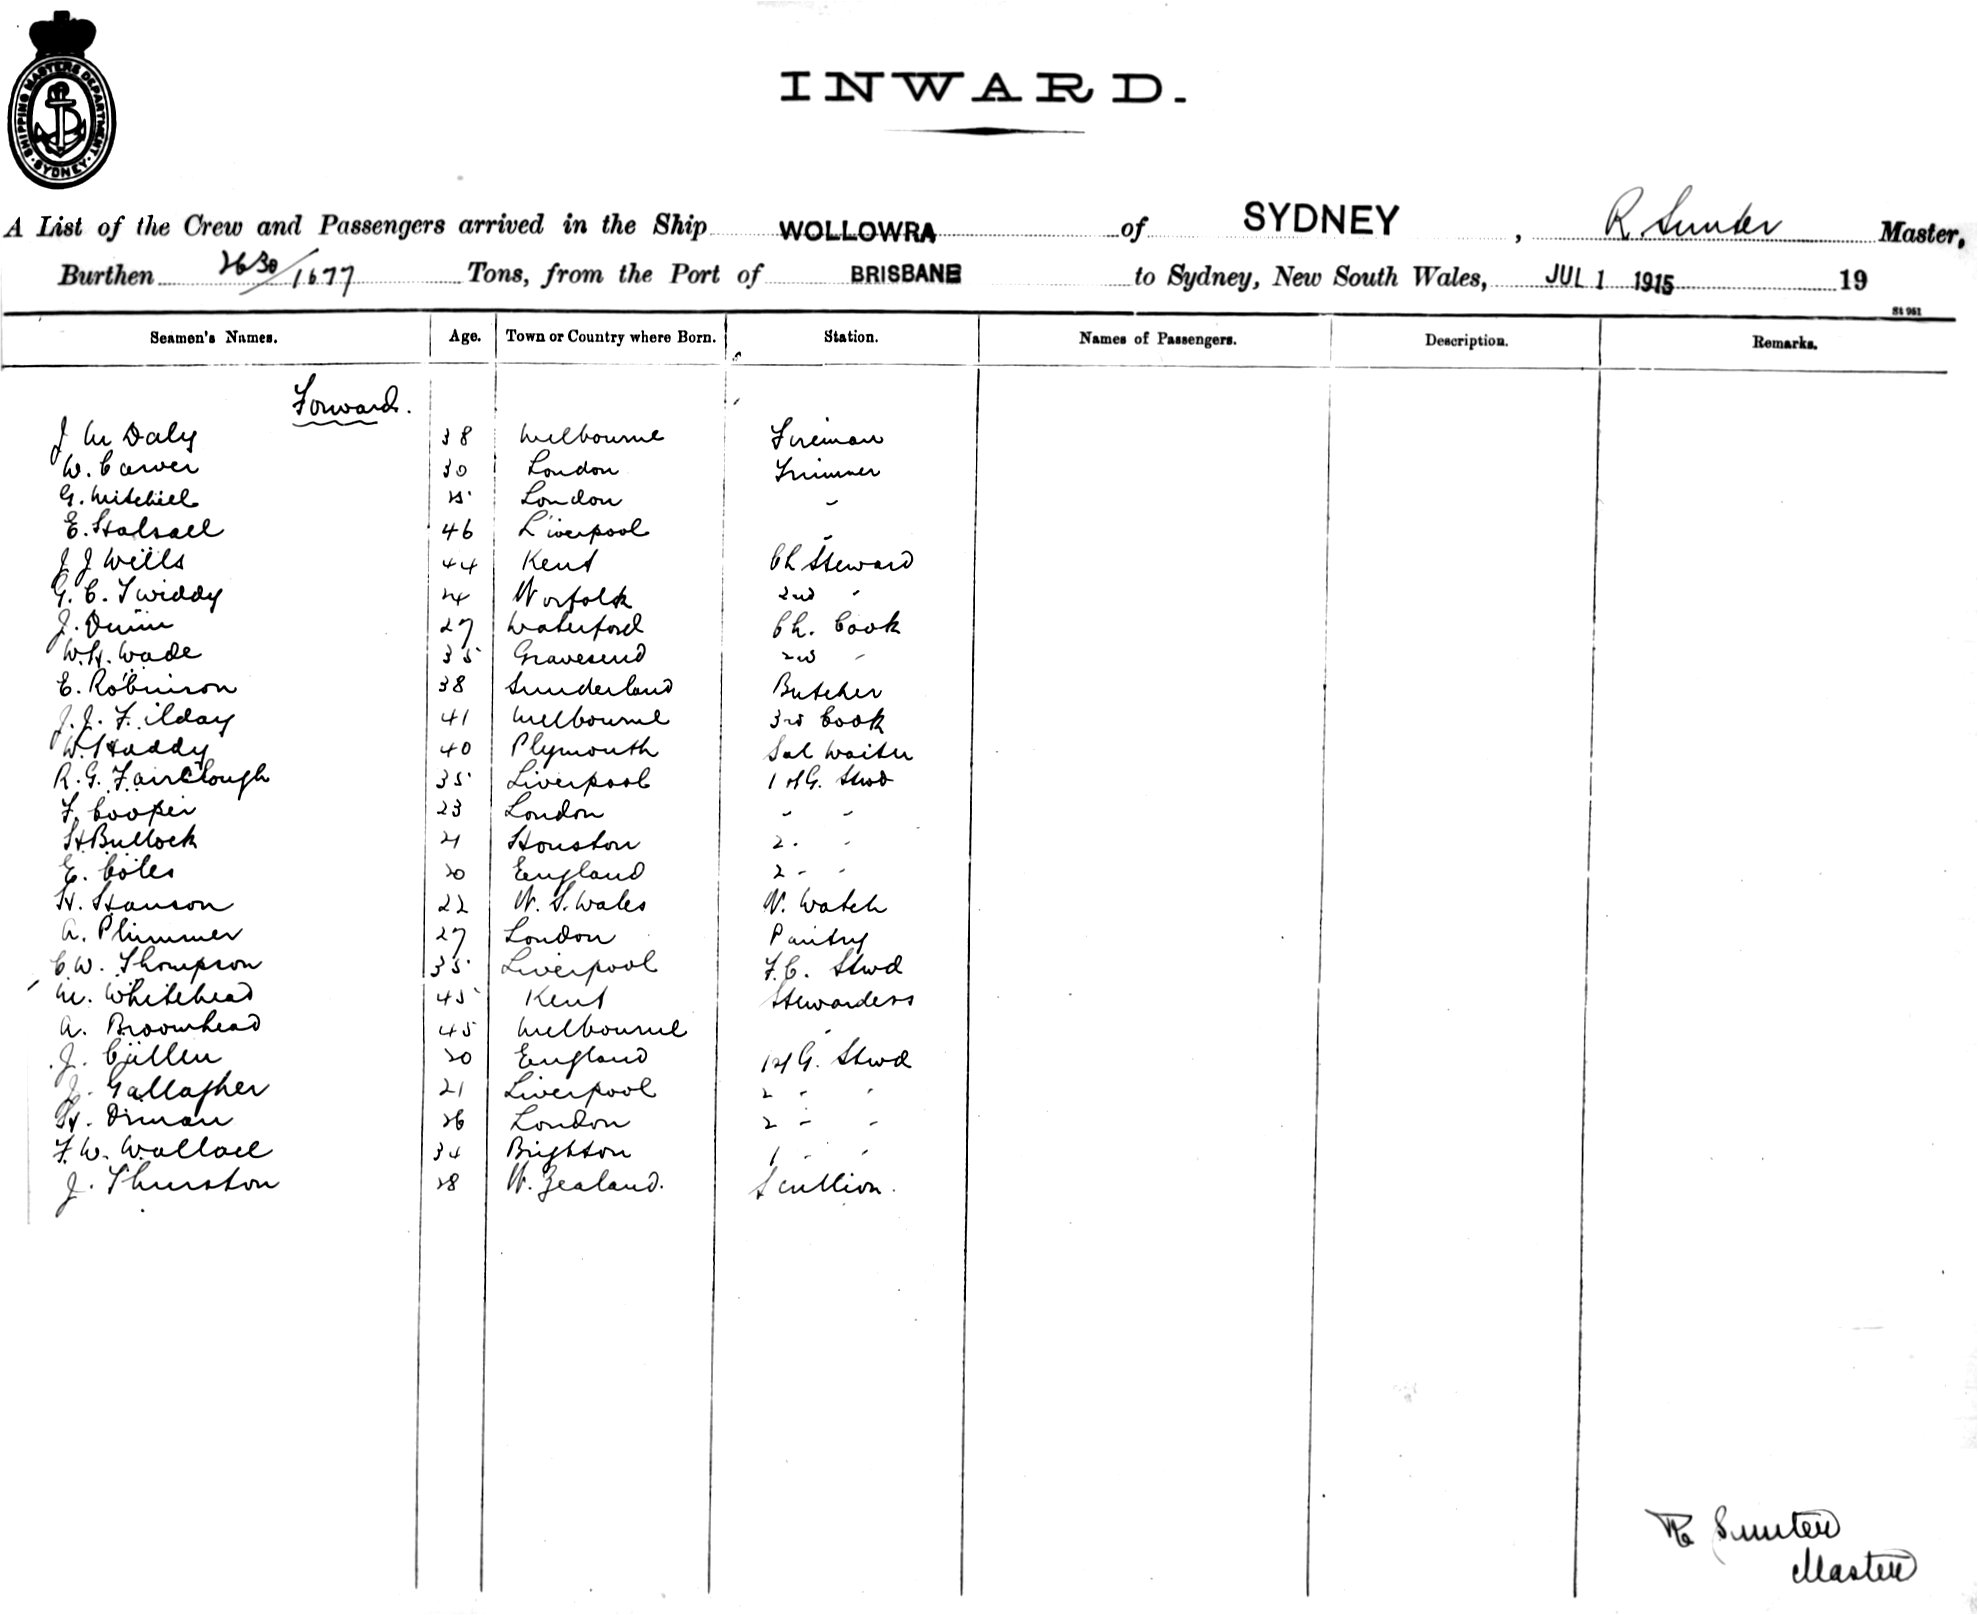 SHIPPING MASTERS DEPARTMENT · SYDNEY ·
INWARD.
A List of the Crew and Passengers arrived in the Ship WOLLOWRA of SYDNEY, R Sunter Master,
Burthen 2630/1677 Tons, from the Port of BRISBANE to Sydney, New South Wales, JUL 1 1915 19
St 961
Seamen's Names. Age. Town or Country where Born. Station. Names of Passengers. Description. Remarks.
Forward.
J Mc Daly 38 Melbourne Fireman
W. Carver 30 London Trimmer
G. Mitchell 25 London "
E. Halsall 46 Liverpool "
J J Wells 44 Kent Ch Steward
G. C. Twiddy 24 Norfolk 2nd "
J. Dunn 27 Waterford Ch. Cook
W.H. Wade 35 Gravesend 2nd "
E. Robinson 38 Sunderland Butcher
J. J. F. ilday 41 Melbourne 3rd Cook
W. Haddy 40 Plymouth Sal Waiter
R. G. Fairclough 35 Liverpool 1st G. Stwd
F. Cooper 23 London " "
H Bullock 21 Houston 2 " "
E. Coles 20 England 2 " "
H. Hanson 22 N. S. Wales N. Watch
A. Plummer 27 London Pantry
C. W. Thompson 35 Liverpool F.C. Stwd
M. Whitehead 45 Kent Stewardess
A. Broomhead 45 Melbourne "
J. Cullen 20 England 1st G. Stwd
J. Gallagher 21 Liverpool 2 " "
H. 26 London 2 " "
F. W. Wallace 34 Brighton 1 " "
J. Thurston 28 N. Zealand. Scullion.
R Sunter
Master